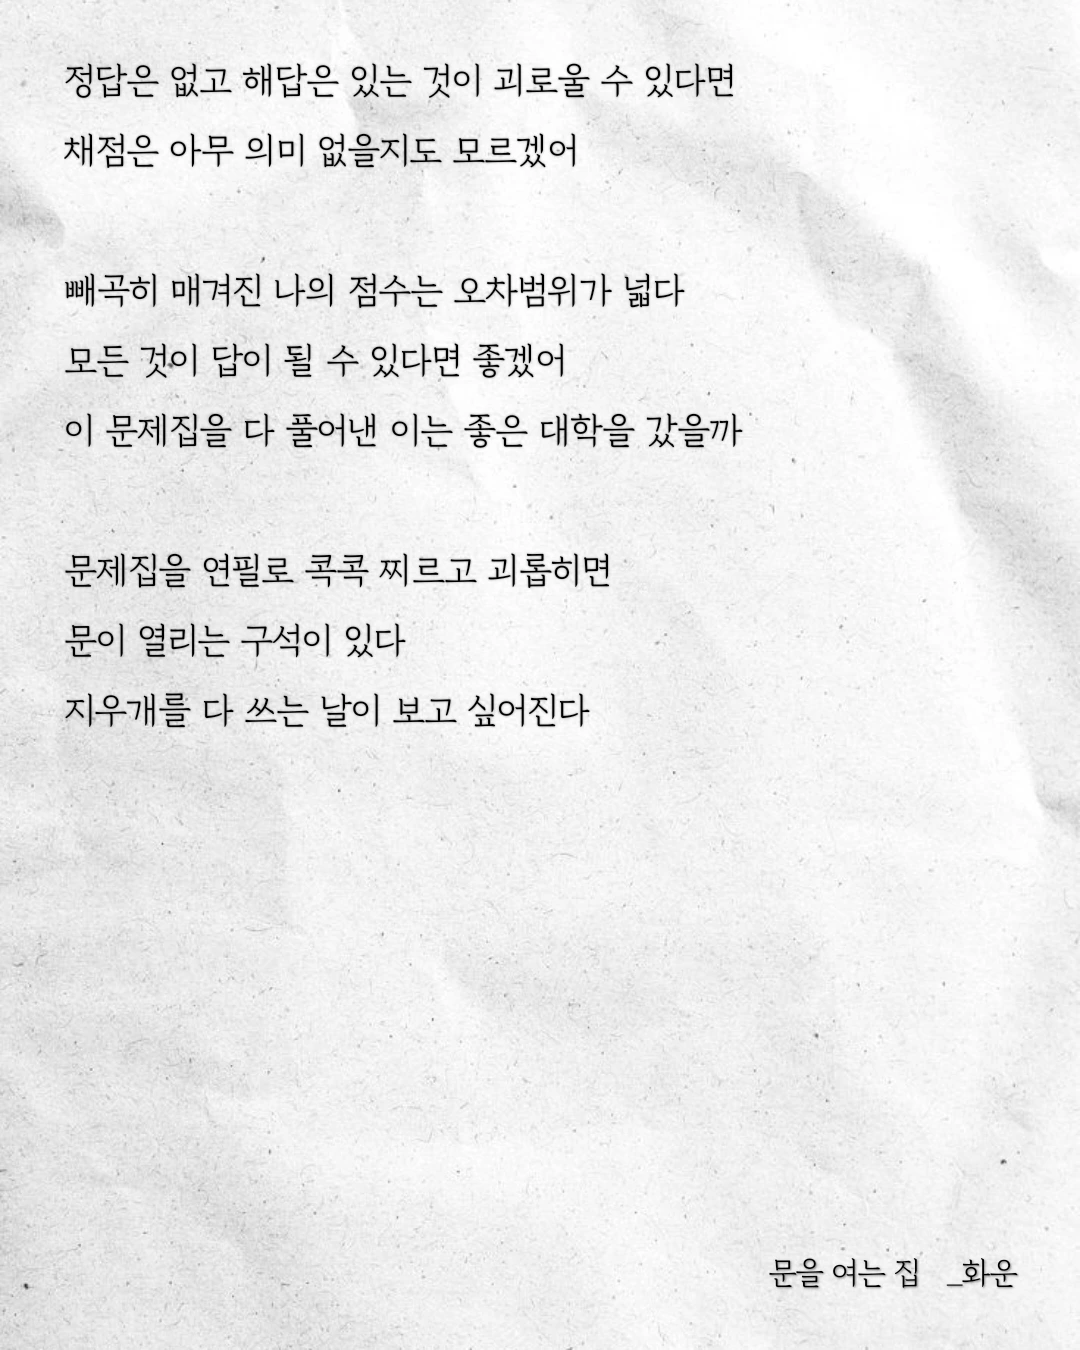 정답은 없고 해답은 있는 것이 괴로울 수 있다면
채점은 아무 의미 없을지도 모르겠어
빼곡히 매겨진 나의 점수는 오차범위가 넓다
모든 것이 답이 될 수 있다면 좋겠어
이 문제집을 다 풀어낸 이는 좋은 대학을 갔을까
문제집을 연필로 콕콕 찌르고 괴롭히면
문이 열리는 구석이 있다
지우개를 다 쓰는 날이 보고 싶어진다
문을 여는 집 _화운